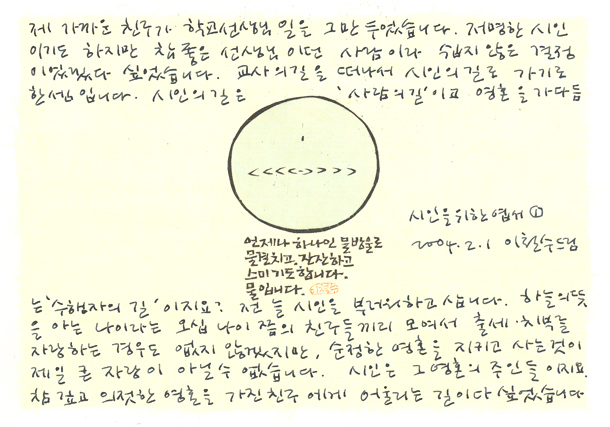 제 가까운 친구가 학교선생님 일을 그만 두었습니다. 저명한 시인
이기도 하지만 참 좋은 선생님 이던 사람이라 쉽지 않은 결정
이었겠다 싶었습니다. 교사의 길을 떠나서 시인의 길로 가기로
한 셈입니다. 시인의 길은 '사람의 길'이고 영혼을 가다듬
언제나 하나인 물방울로
물결치고, 잔잔하고
스미기도 합니다.
물입니다.
시인을 위한 엽서 ①
2004.2.1 이철수 드림
는 '수행자의 길' 이지요? 전 늘 시인을 부러워하고 삽니다. 하늘의 뜻
을 아는 나이라는 오십 나이 쯤의 친구들끼리 모여서 출세·치부를
자랑하는 경우도 없지 않겠지만, 순정한 영혼을 지키고 사는것이
제일 큰 자랑이 아닐 수 없습니다. 시인은 그 영혼의 주인들 이지요.
참 깊고 의젓한 영혼을 가진 친구에게 어울리는 길이다 싶었습니다